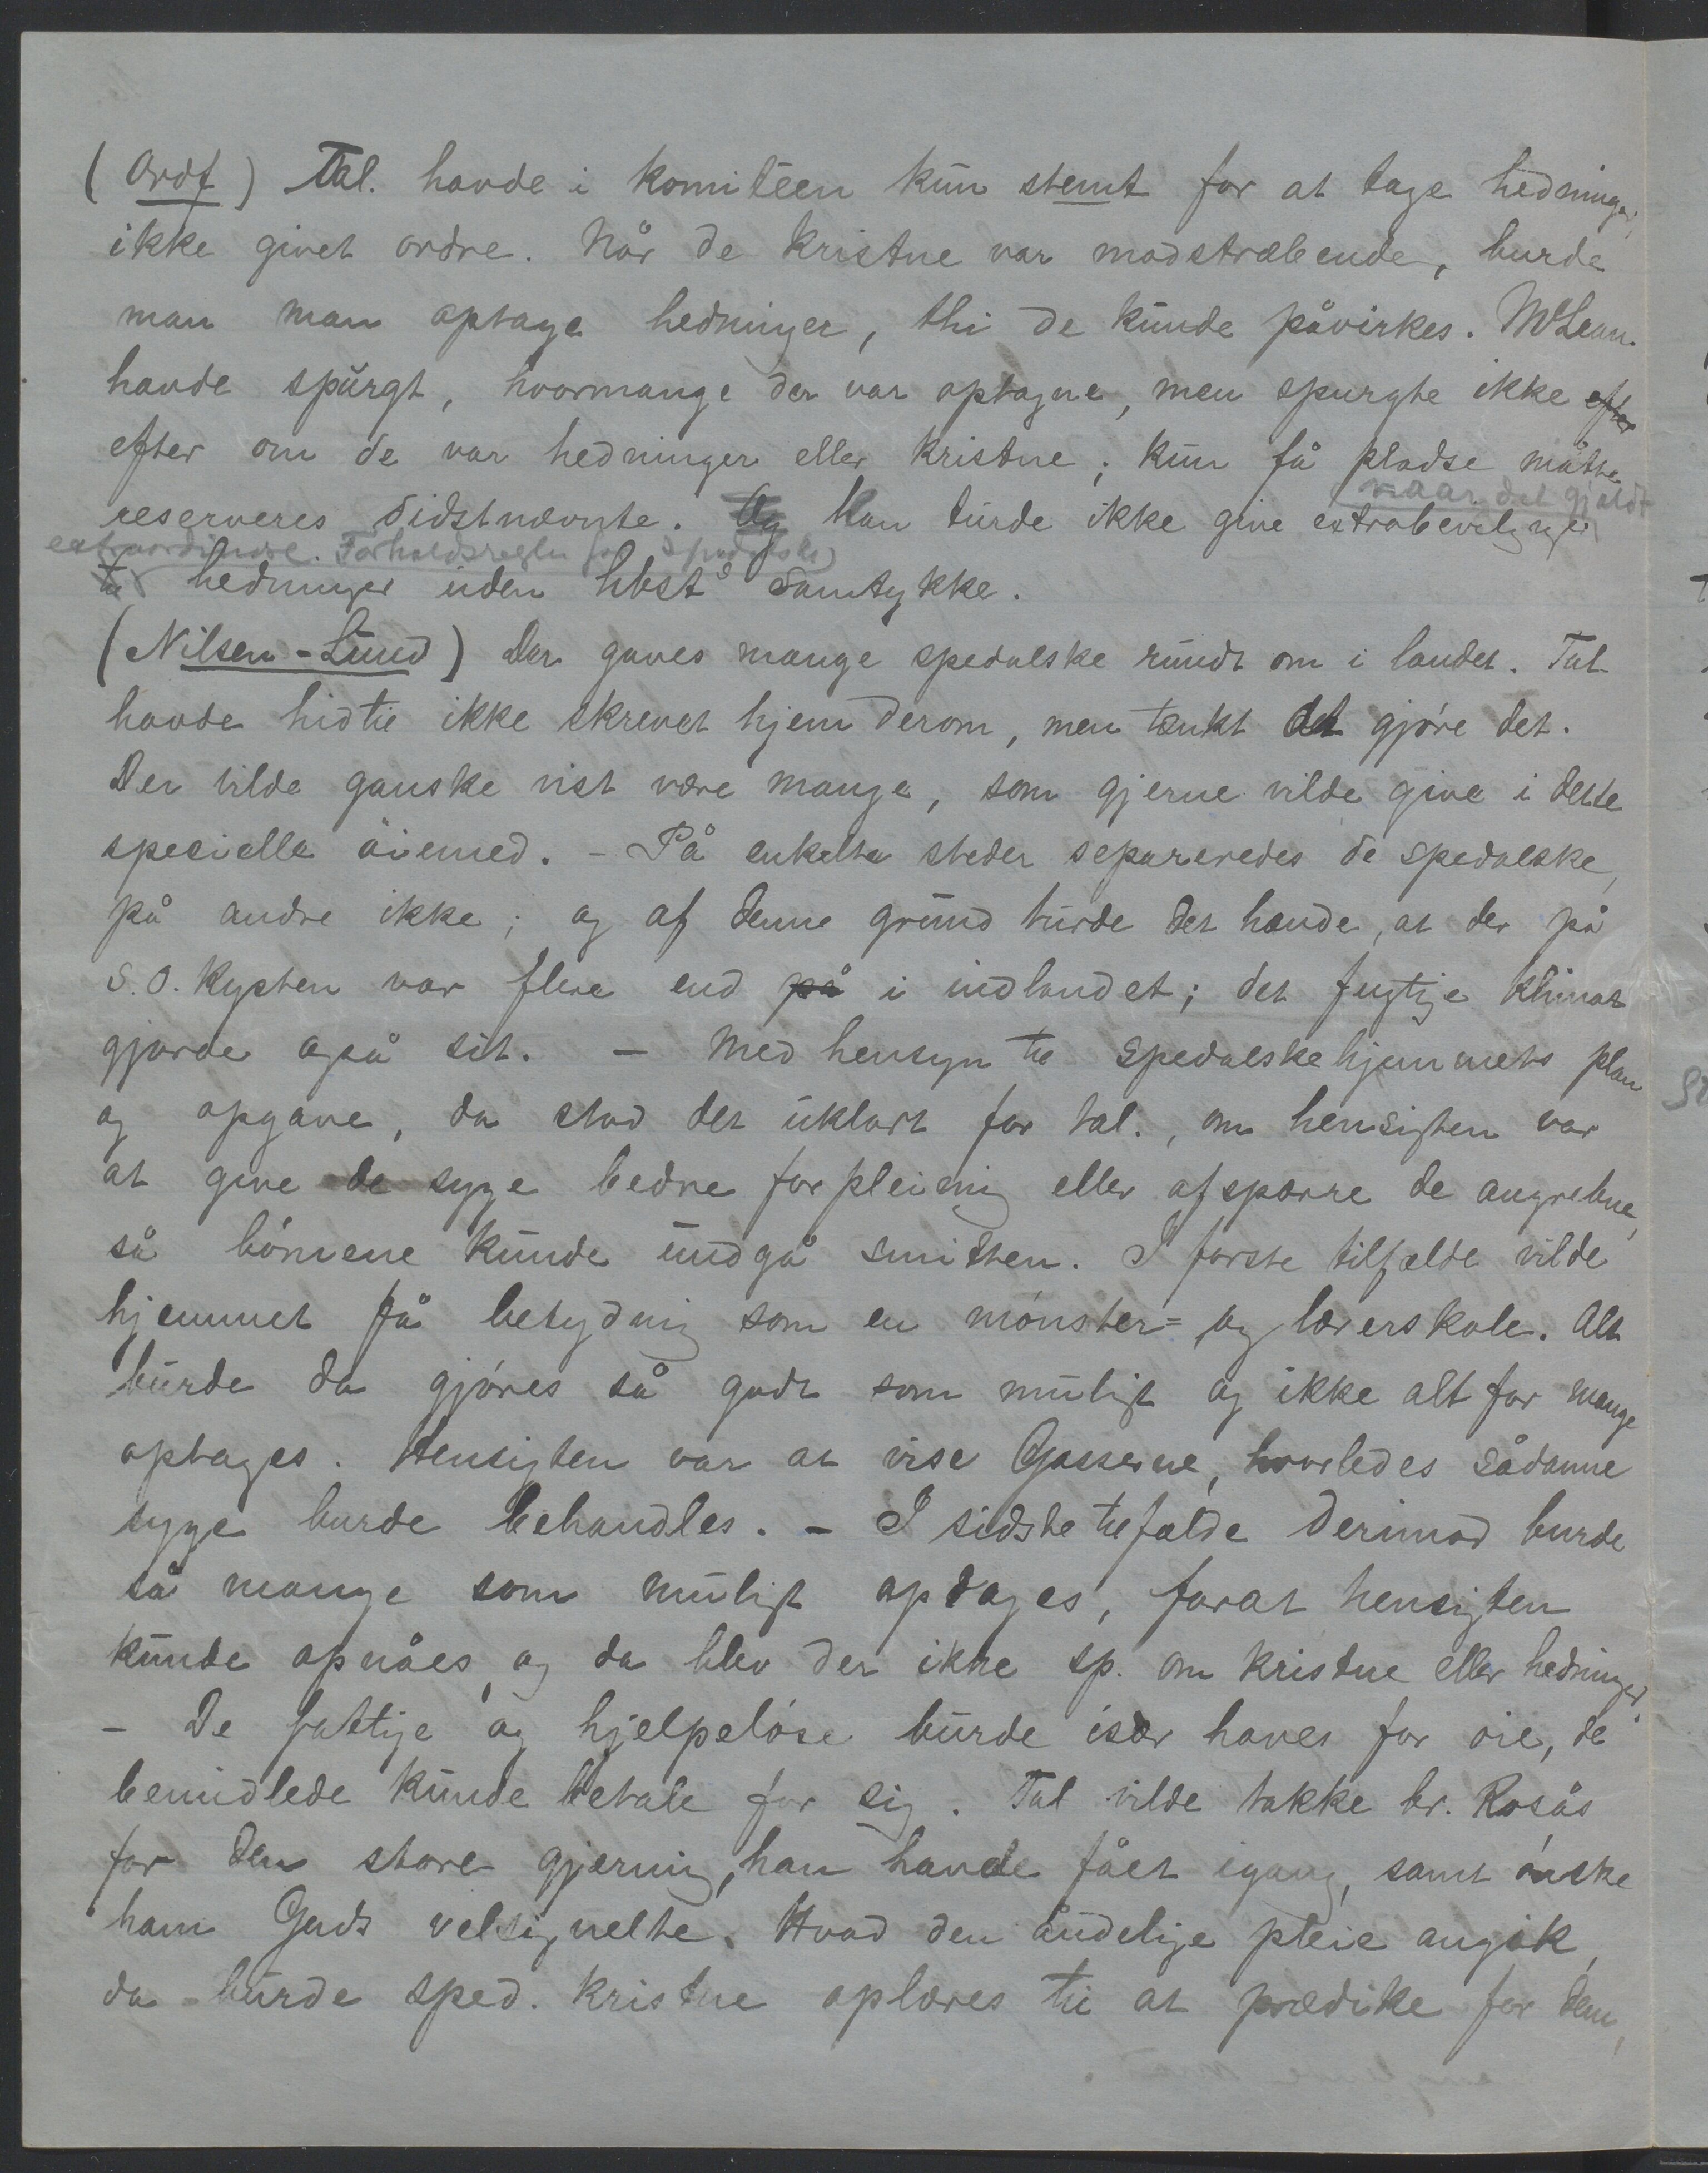 (Ordf) Tal. havde i komitéen kun stemt for at tage hedninger,
ikke givet ordre. Når de kristne var modstræbende, burde
man man optage hedninger, thi de kunde påvirkes. McLean.
havde spurgt, hvormange der var optagne, men spurgte ikke efter
efter om de var hedninger eller kristne; kun få pladse måtte
(naar det gjældt
reserveres sidstnævnte. Og Han turde ikke give extrabevilgninger
extraordinære Forholdsregler for spedalske)
til hedninger uden hbst⁵ samtykke.
(Nilsen-Lund) Der gaves mange spedalske rundt om i landet. Tal.
havde hidtil ikke skrevet hjem derom, men tænkt at gjøre det.
Der vilde ganske vist være mange, som gjerne vilde give i dette
specielle øiemed. - På enkelte steder separeredes de spedalske,
på andre ikke; og af denne grund turde det hænde, at der på
S.O. Kysten var flere end på i indlandet; det fugtige klimat
gjorde også sit. - Med hensyn til Spedalskehjemmets plan
og opgave, da stod det uklart for tal., om hensigten var
at give de syge bedre forpleining eller afspærre de angrebne,
så börnene kunde undgå smitten. I første tilfælde vilde
hjemmet få betydning som en mönster= og lærerskole. Alt
burde da gjöres så godt som muligt og ikke alt for mange
optages. Hensigten var at vise Gasserne, hvorledes sådanne
syge burde behandles. - I sidste tilfælde derimod burde
så mange som muligt optages, forat hensigten
kunde opnåes, og da blev der ikke sp. om kristne eller hedninger.
- De fattige og hjelpelöse burde især haves for öie, de
bemidlede kunde betale for sig. Tal vilde takke br. Rosås
for den store gjerning, han havde fået igang, samt önske
ham Guds velsignelse. Hvad den åndelige pleie angik,
da burde sped. kristne oplæres til at prædike for dem,